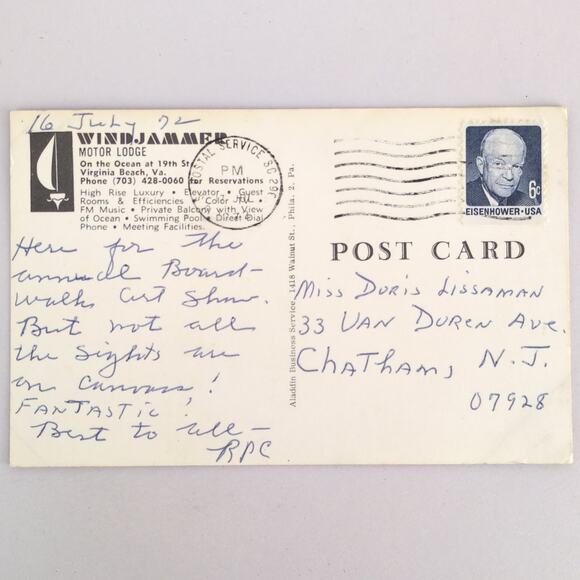 16 July 72
WINDJAMMER
MOTOR LODGE
On the Ocean at 19th St.
Virginia Beach, Va.
Phone (703) 428-0060 for Reservations
High Rise Luxury • Elevator • Guest
Rooms & Efficiencies • Color
FM Music • Private Balcony with View
of Ocean • Swimming Pool • Direct Dial
Phone • Meeting Facilities.
POSTAL SERVICE S.C.
PM
JUL
Here for the
annual Board-
walk Art Show.
But not all
the sights are
on canvass!
FANTASTIC!
Best to all—
RPC
Aladdin Business Service, 1418 Walnut St., Phila. 2, Pa.
6c
EISENHOWER·USA
POST CARD
MISS DORIS LISSAMAN
33 VAN DOREN AVE.
CHATHAM, N.J.
07928